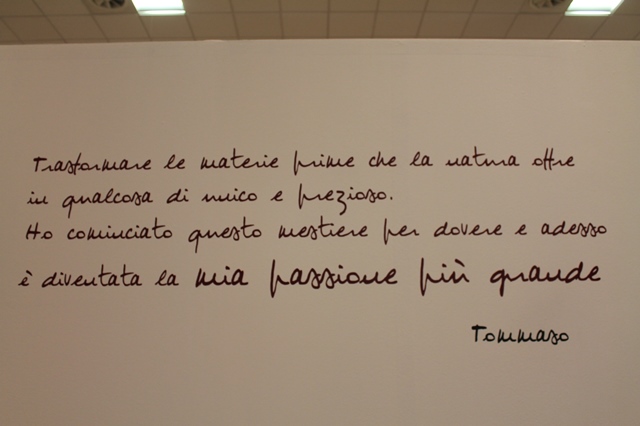 Trasformare le materie prime che la natura offre
in qualcosa di unico e prezioso.
Ho cominciato questo mestiere per dovere e adesso
è diventata la mia passione più grande
Tommaso